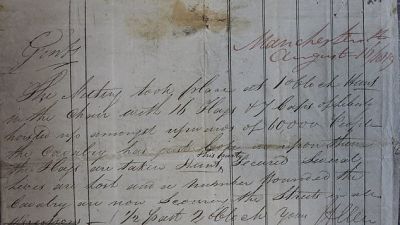 Gents
Manchester
August 16 1819
The Meeting took place at 1 oblock Hunt
in the Chair with 16 Flags & 7 Caps of Liberty
hoisted up amongst upwards of 60000 People
the Cavalry has just upon them
the Flags are taken Hunt this party Secured Several
Lives are lost and a number Wounded the
Cavalry are now Scouring the Streets in all
directions - 1/2 past 2 oblock your